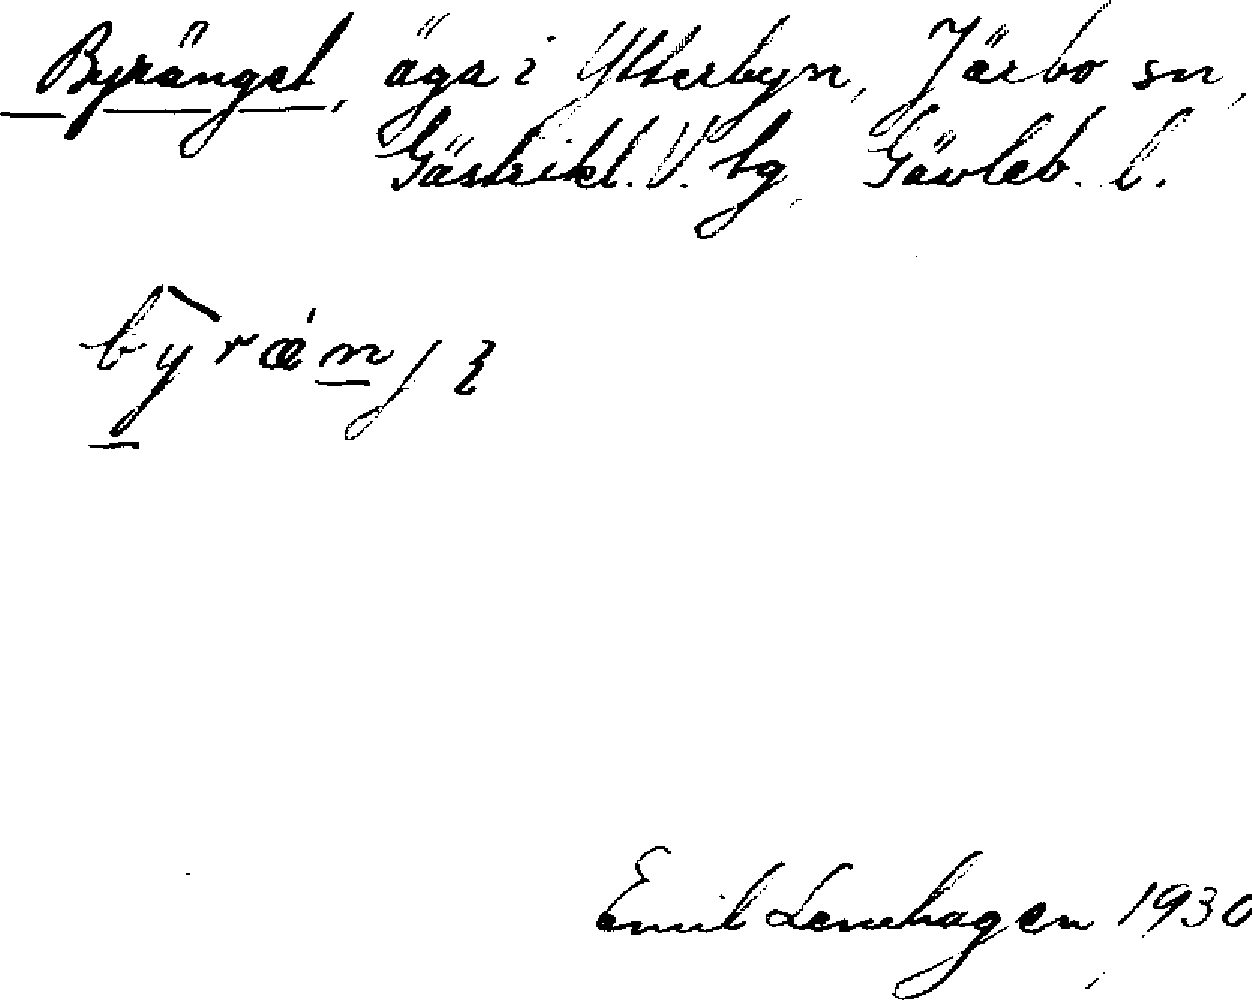 Byränget, äga i Ytterbyn, Järbo sn,
Gästrikl. V. tg, Gävleb. l.
Emil Lenehagen 1930